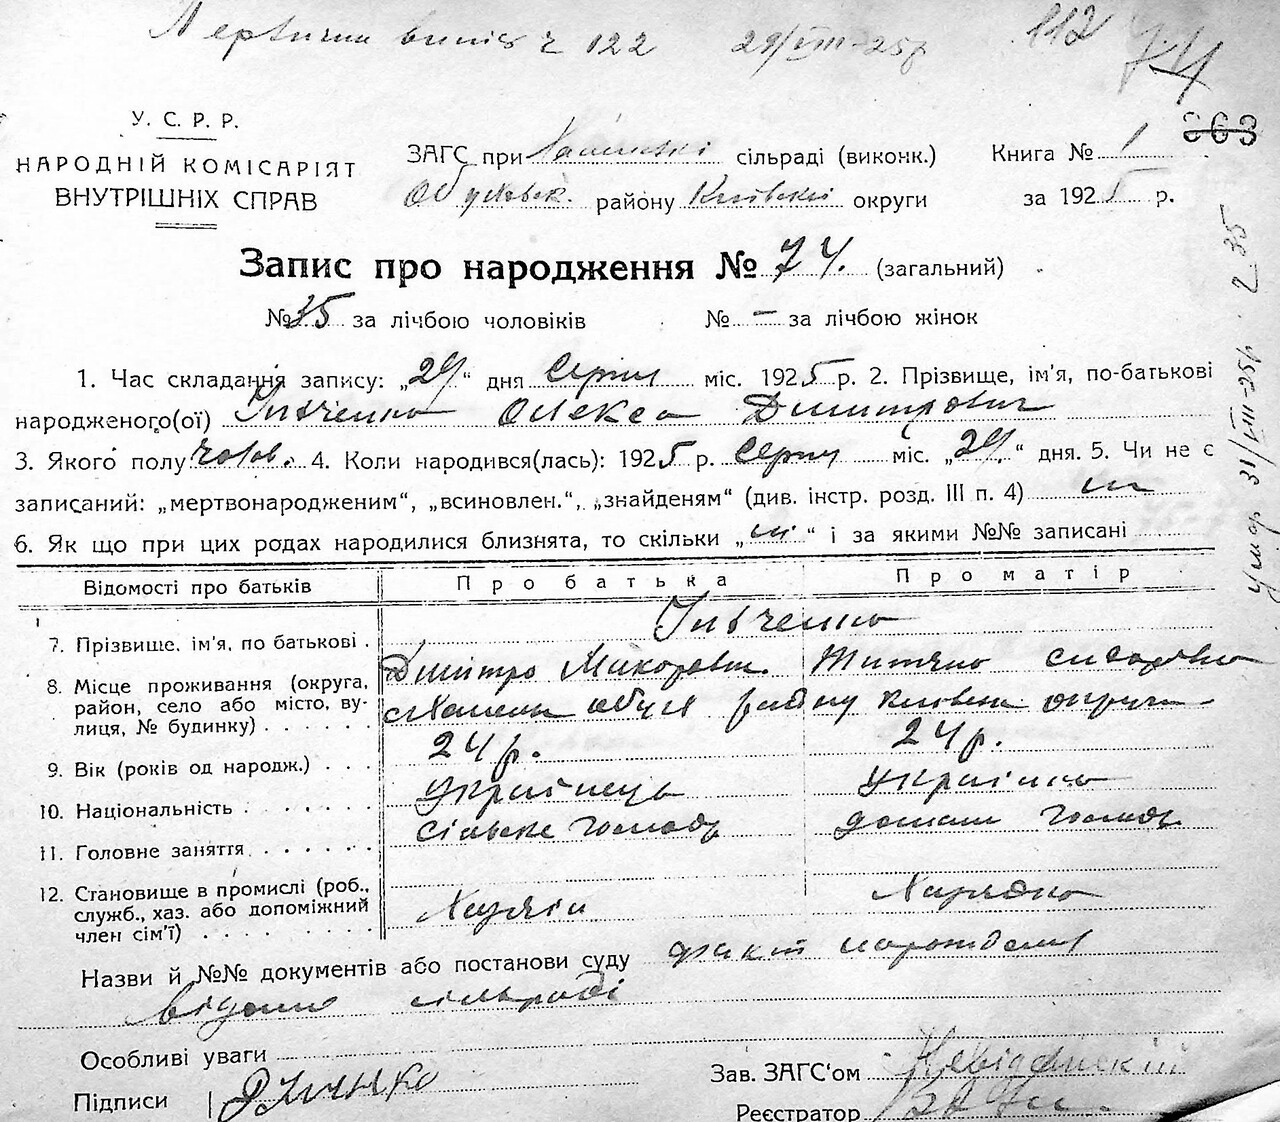 Первична випись ч 122 29/VIII-25р 112 74
363
У. С. Р. Р.
НАРОДНІЙ КОМІСАРІЯТ
ВНУТРІШНІХ СПРАВ
ЗАГС при сільраді (виконк.) Книга № 1
Обухівськ. району Київської округи за 1925 р.
Запис про народження № 74. (загальний)
№ 35 за лічбою чоловіків № — за лічбою жінок
1. Час складання запису: „29“ дня Серпня міс. 1925 р. 2. Прізвище, ім'я, по-батькові
народженого(ої) Івченко Олекса Димитрович
3. Якого полу чолов. 4. Коли народився(лась): 1925 р. Серпня міс. „29.“ дня. 5. Чи не є
записаний: „мертвонародженим“, „всиновлен.“, „знайденям“ (див. інстр. розд. III п. 4) ні
6. Як що при цих родах народилися близнята, то скільки „ні“ і за якими №№ записані
Відомості про батьків Про батька Про матір
7. Прізвище, ім'я, по батькові . Івченко
Димітро Макарович Титяна Сидоровна
8. Місце проживання (округа, район, село або місто, вулиця, № будинку) . . . . . району Київськ округи
9. Вік (років од народж.) . . . 24 р. 24 р.
10. Національність . . . . . . . Українець Українка
11. Головне заняття . . . . . . . сільське господ домашн господ
12. Становище в промислі (роб.,
служб., хаз. або допоміжний
член сім'ї) . . . . . . . . . Хазяїн Хазяйка
Назви й №№ документів або постанови суду факт народження
відомо сільраді
Особливі уваги
Підписи
Зав. ЗАГС'ом
Реєстратор
31/VIII-25р. 2 35